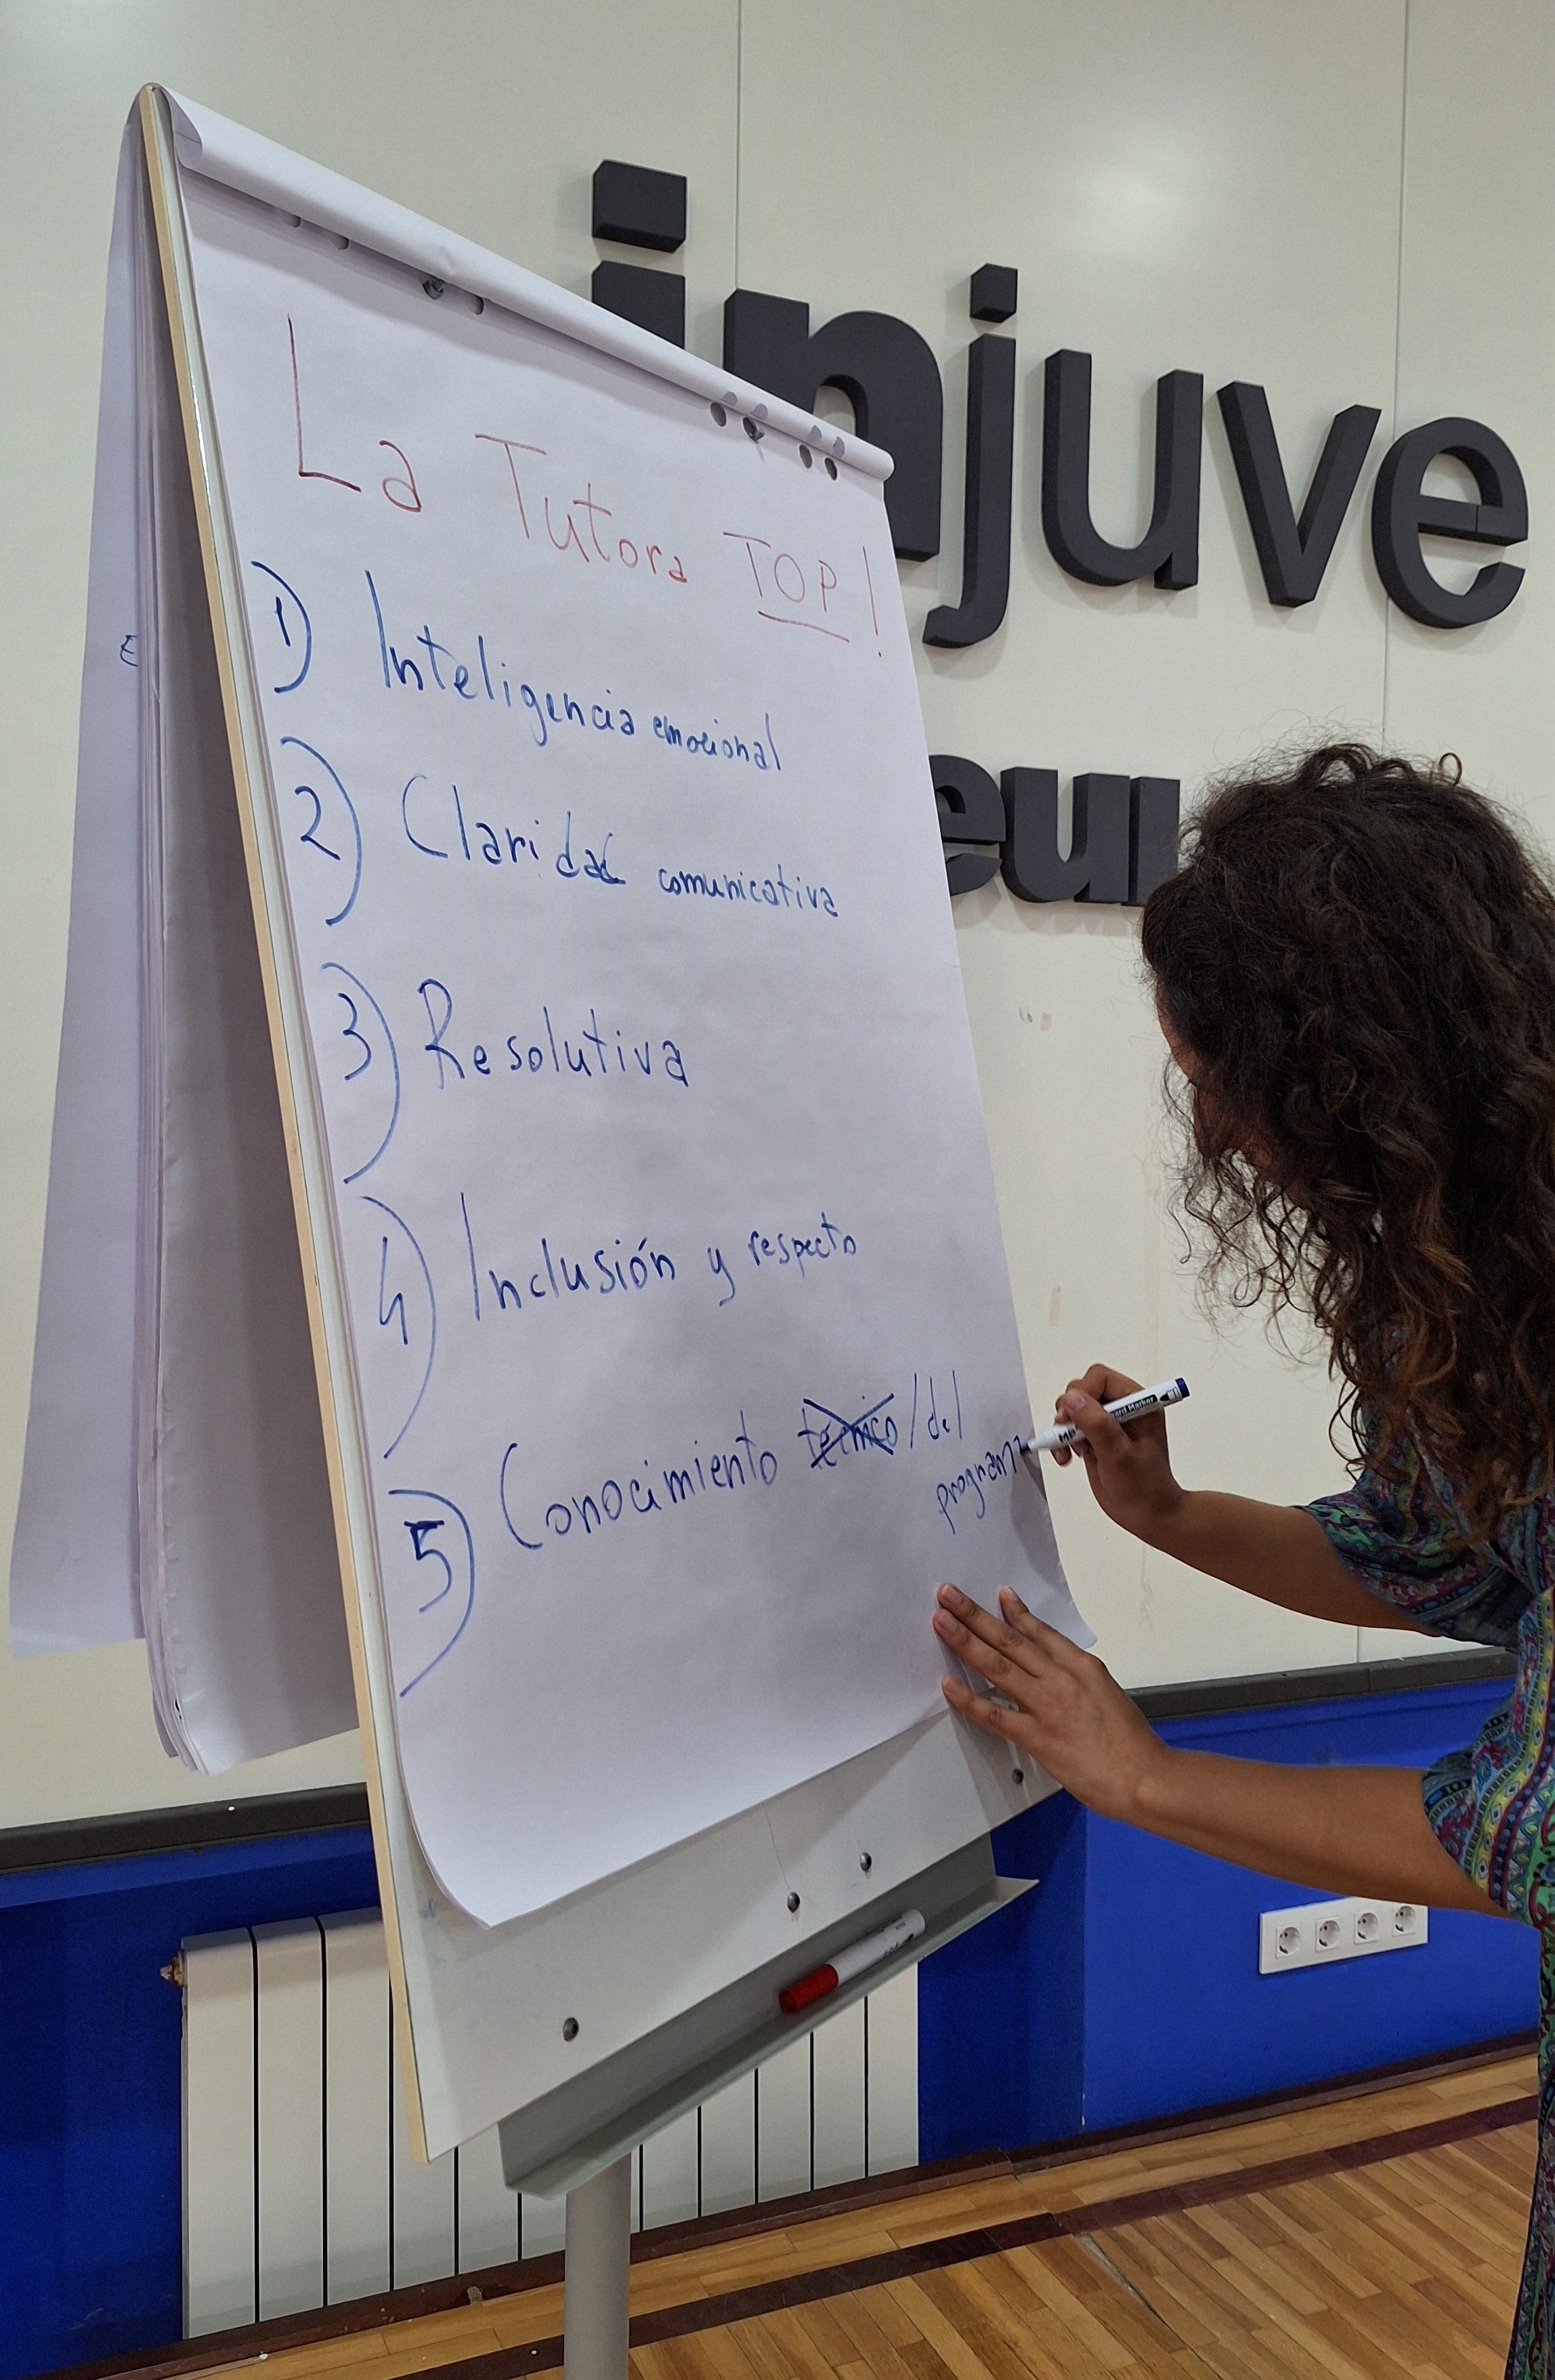 injuve
La Tutora TOP!
1) Inteligencia emocional
2) Claridad comunicativa
3) Resolutiva
4) Inclusión y respecto
5) Conocimiento técnico / del
programa